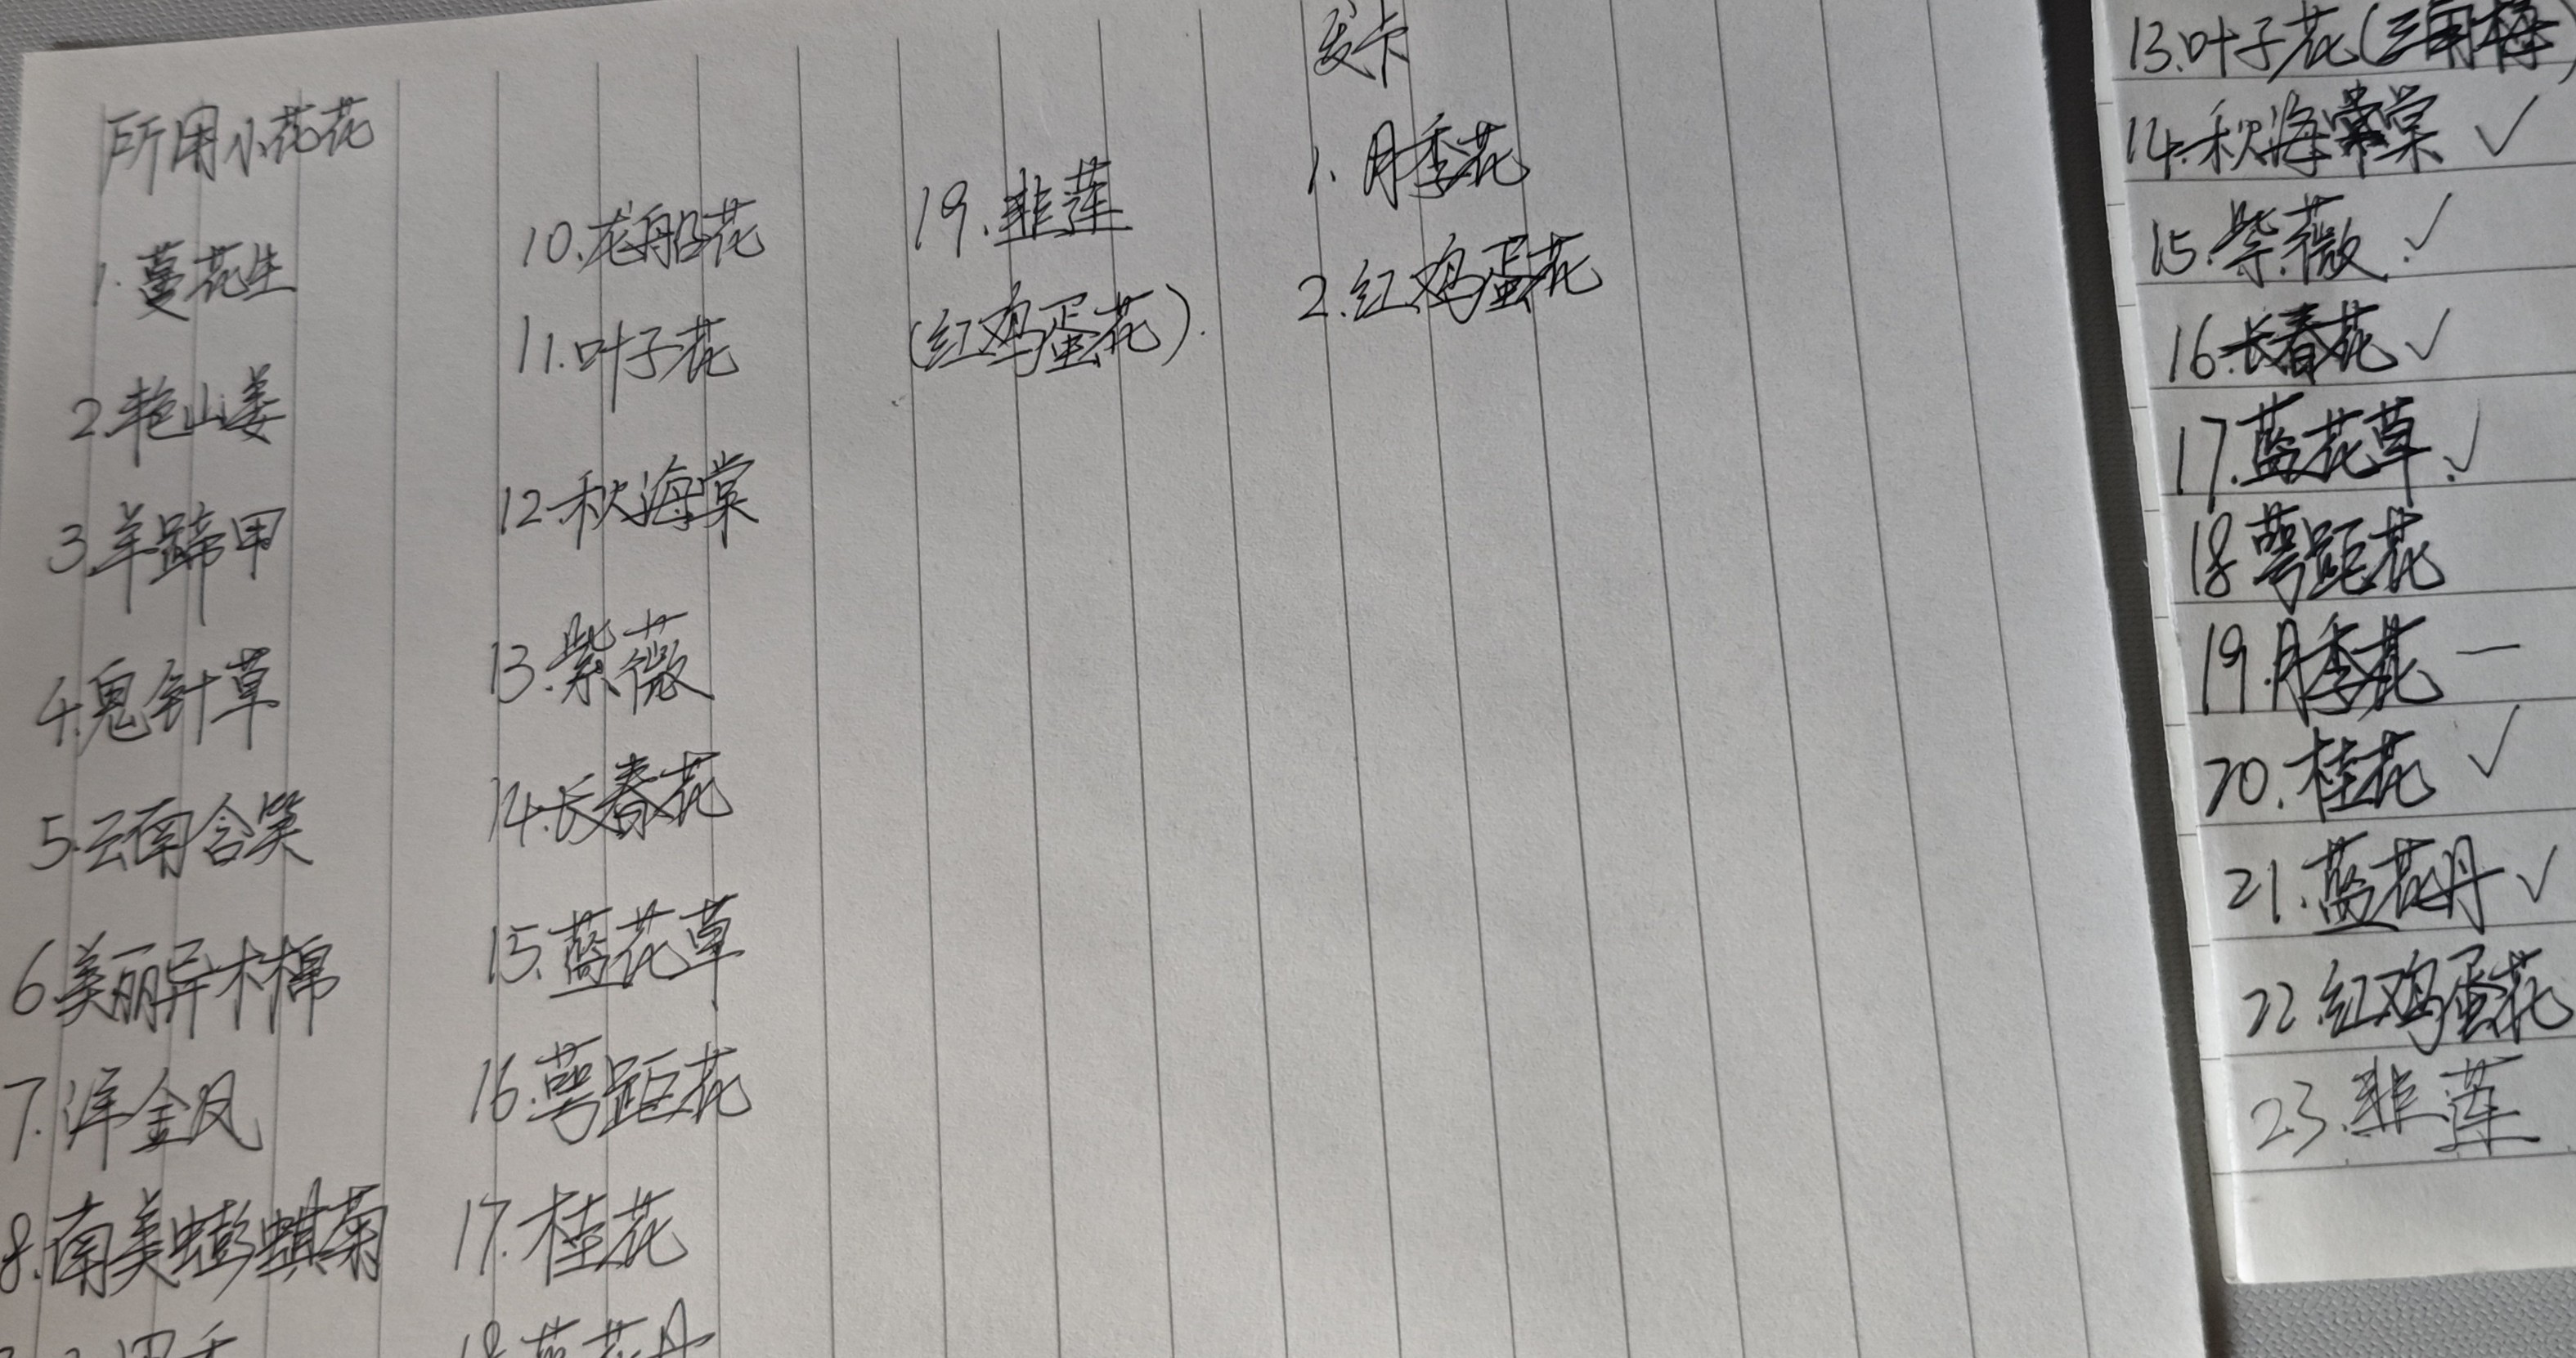 所用小花花
1.蔓花生
2.艳山姜
3.羊蹄甲
4.鬼针草
5.云南含笑
6.美丽异木棉
7.洋金凤
8.南美蟛蜞菊
10.龙船花
11.叶子花
12.秋海棠
13.紫薇
14.长春花
15.蓝花草
16.萼距花
17.桂花
18.蓝花丹
19.韭莲
(红鸡蛋花).
发卡
1.月季花
2.红鸡蛋花
13.叶子花(三角梅)
14.秋海棠 ✓
15.紫薇.✓
16.长春花✓
17.蓝花草.✓
18萼距花
19.月季花 —
20.桂花 ✓
21.蓝花丹 ✓
22.红鸡蛋花
23.韭莲